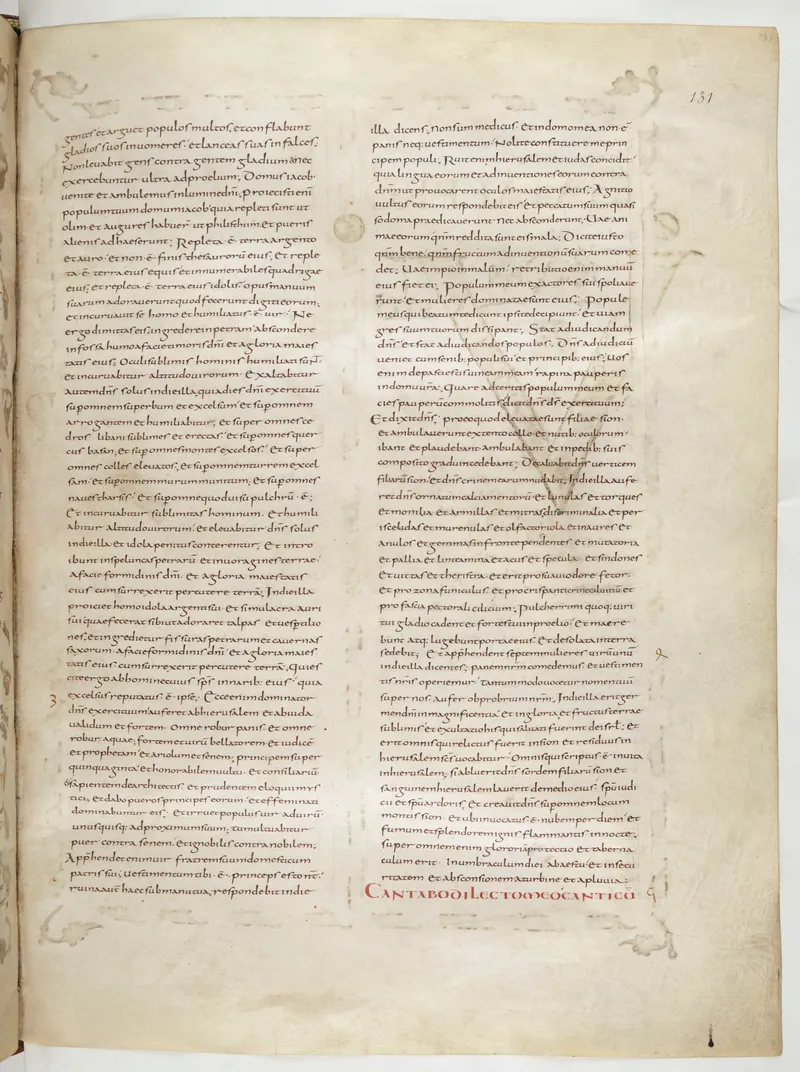 131
gentes et arguet populos multos; et conflabunt
gladios suos in uomeres; et lanceas suas in falces;
Non leuabit gens contra gentem gladium nec
exercebuntur ultra ad proelium; Domus iacob
uenite et ambulemus in lumine dnī; proiecisti eni
populum tuum domum iacob quia repleti sunt ut
olim et augures habuer ut philisthim; et pueris
alienis adhaeserunt; Repleta ē terra argento
et auro et non ē finis thesaurorū eius; et reple
ta ē terra eius equis et innumerabiles quadrigae
eius; et repleta ē terra eius idolis; opus manuum
suarum adorauerunt quod fecerunt digiti eorum;
et incuruauit se homo et humiliatus ē uir Ne
ergo dimittas eis; ingredere in petram abscondere
in fossa humo a facie timoris dnī et a gloria maies
tatis eius; Oculi sublimis hominis humiliati sunt
et incuruabitur altitudo uirorum Exaltabitur
autem dns solus in die illa, quia dies dnī exercituū
super omnem superbum et excelsum et super omnem
arrogantem et humiliabitur; et super omnes ce
dros libani sublimes et erectas; et super omnes quer
cus basan, et super omnes montes excelsos; et super
omnes colles eleuatos, et super omnem turrem excel
sam et super omnem murum munitum, et super omnes
naues tharsis; et super omne quod uisu pulchrū ē;
Et incuruabitur sublimitas hominum et humili
abitur altitudo uirorum et eleuabitur dns solus
in die illa et idola penitus conterentur; et intro
ibunt in speluncas petrarū et in uoragines terrae
a facie formidinis dnī et a gloria maiestatis
eius cum surrexerit percutere terrā; In die illa
proiciet homo idola argenti sui et simulacra auri
sui quae fecerat sibi ut adoraret talpas et uespertilio
nes; et ingredietur fissuras petrarum et cauernas
saxorum a facie formidinis dnī et a gloria maies
tatis eius cum surrexerit percutere terrā; Quies
cite ergo ab homine cuius sps in narib; eius quia
excelsus reputatus ē ipse; Ecce enim dominator
dns exercituum auferet ab hierusalem et a iuda
ualidum et fortem omne robur panis et omne
robur aquae; fortem et uirū bellatorem et iudicē
et prophetam et ariolum et senem; principem super
quinquaginta et honorabilem uultu et consiliariū
& sapientem de architectis et prudentem eloquii mys
tici, et dabo pueros principes eorum et effeminati
dominabuntur eis; et irruet populus uir ad uirū
unusquisq; ad proximum suum; tumultuabitur
puer contra senem et ignobilis contra nobilem;
Apphendet enim uir fratrem suum domesticum
patris sui; uestimentum tibi ē princeps esto nr
ruina aut haec sub manu tua; respondebit in die
illa dicens; non sum medicus et in domo mea non ē
panis neq; uestimentum Nolite constituere me prin
cipem populi; Ruit enim hierusalem et iudas concidit
quia lingua eorum et adinuentiones eorum contra
dnm ut prouocarent oculos maiestatis eius; Agnitio
uultus eorum respondebit eis et peccatum suum quasi
sodoma praedicauerunt nec absconderunt; Uae ani
mae eorum qnm reddita sunt eis mala; Dicite iusto
qnm bene; qnm fructum adinuentionū suarum come
det; Uae impio in malum retributio enim manuū
eius fiet ei; Populum meum exactores sui spoliaue
runt et mulieres dominatae sunt eius; Popule
meus qui beatum te dicunt ipsi te decipiunt et uiam
gressuum tuorum dissipant; Stat ad iudicandum
dns et stat ad iudicandos populos; Dns ad iudiciū
ueniet cum senib; populi sui et principib; eius; Uos
enim depasti estis uineam meam rapina pauperis
in domo ura; quare adteritis populum meum et fa
cies pauperū commolitis dicit dns ds exercituum;
Et dixit dns; pro eo quod eleuatae sunt filiae sion
et ambulauerunt extento collo et nutib; oculorum
ibant et plaudebant ambulabant et in pedib; suis
composito gradu incedebant; Decaluabit dns uerticem
filiarū sion et dns crinem earum nudabit; In die illa aufe
ret dns ornatum calciamentorū et lunulas et torques
et monilia et armillas et mitras discriminalia et peri
scelidas et murenulas et olfactoriola et inaures et
anulos et gemmas in fronte pendentes et mutatoria
et pallia et linteamina et acus et specula et sindones
et uittas et theristra et erit pro suaui odore fetor
et pro zona funiculus et pro crispanti crine caluitiū et
pro fascia pectorali cilicium; Pulcherrimi quoq; uiri
tui gladio cadent et fortes tui in proelio et maere
bunt atq; lugebunt portae eius; et desolata in terra
sedebit; Et apphendent septem mulieres uirū unū
in die illa dicentes; panem nrm comedemus et uestimen
tis nris operiemur tantummodo uocetur nomen tuū
super nos aufer obprobrium nrm; In die illa erit ger
men dnī in magnificentia et in gloria et fructus terrae
sublimis et exultatio his qui saluati fuerint de isrl; et
erit omnis qui relictus fuerit in sion et residuus in
hierusalem scs uocabitur Omnis qui scriptus ē in uita
in hierusalem; si abluerit dns sordem filiarū sion et
sanguinem hierusalem lauerit de medio eius; spu iudi
cii et spu ardoris; et creauit dns super omnem locum
montis sion et ubi inuocatus ē nubem per diem et
fumum et splendorem ignis flammantis in nocte,
super omnem enim gloriā protectio et taberna
culum erit in umbraculum diei ab aestu et in secu
ritatem et absconsionem a turbine et a pluuia;
CANTABO DILECTO MEO CANTICŪ